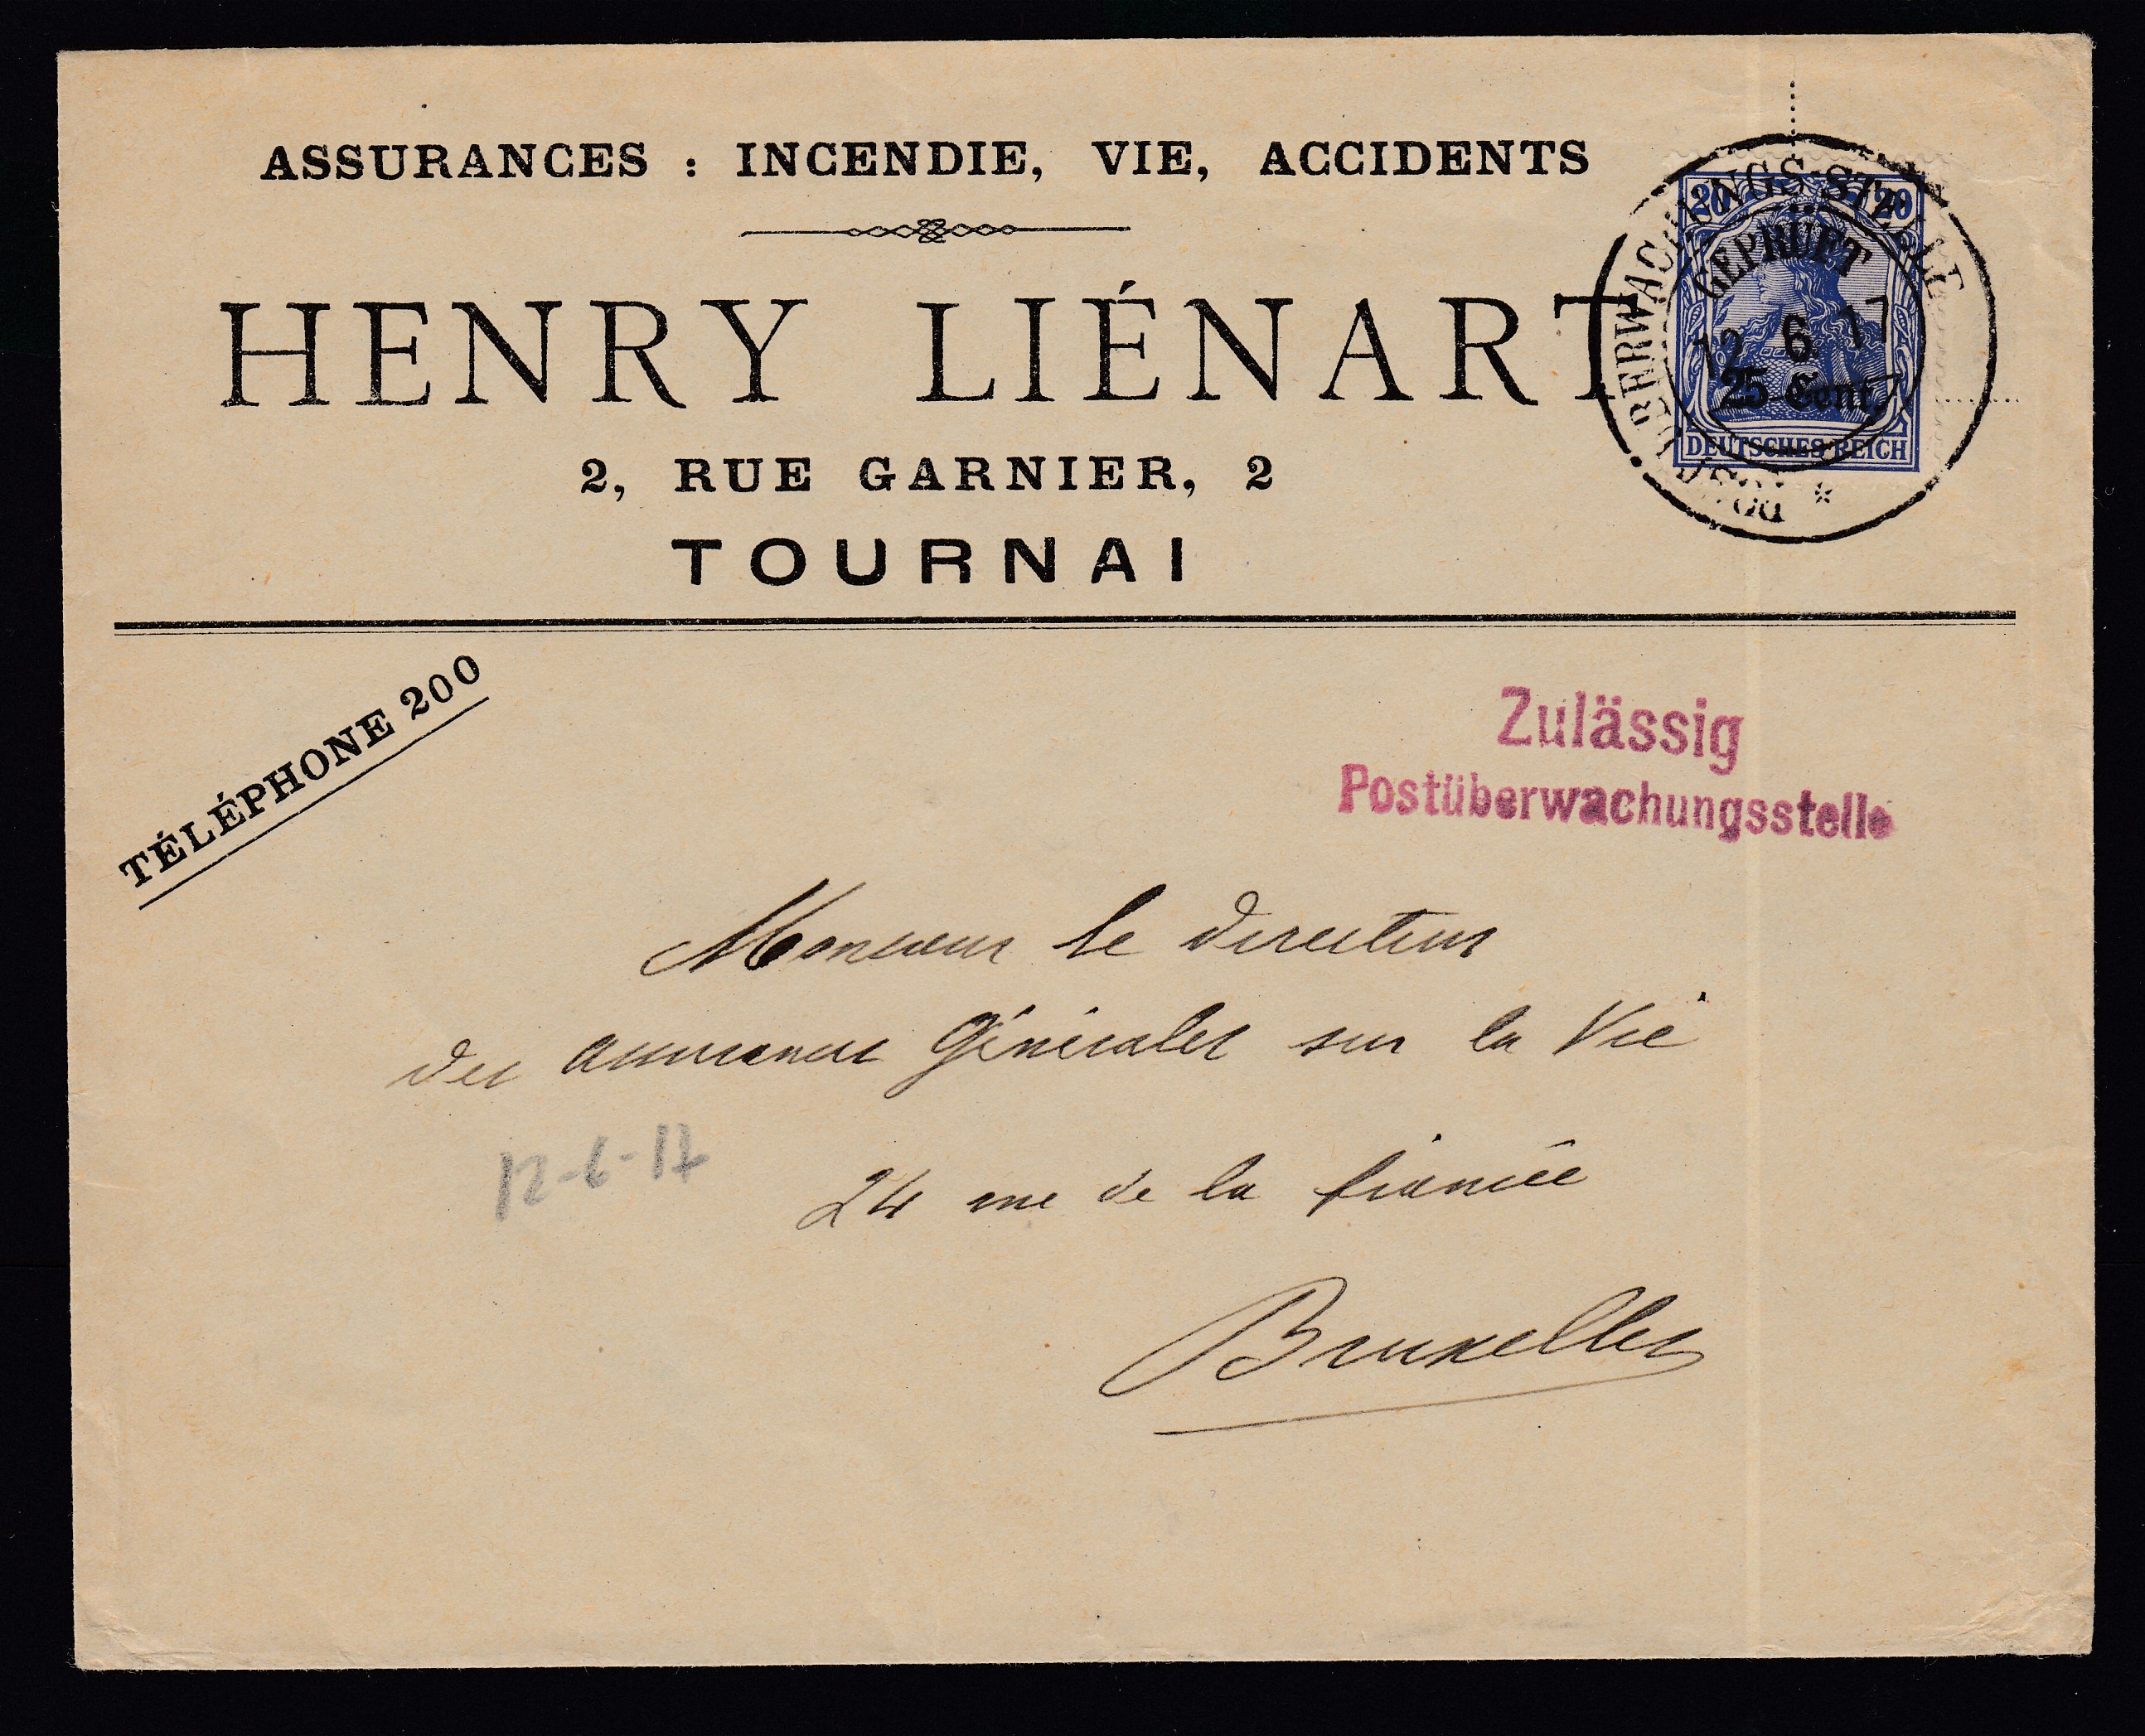 ASSURANCES : INCENDIE, VIE, ACCIDENTS
HENRY LIÉNART
2, RUE GARNIER, 2
TOURNAI
20 20
POSTÜBERWACHUNGS-STELLE *
GEPRÜFT
12 6 17
25 Cent.
DEUTSCHES REICH
TÉLÉPHONE 200
Zulässig
Postüberwachungsstelle
Monsieur le Directeur
des assurances Générales sur la Vie
12-6-17
24 rue de la fiancée
Bruxelles